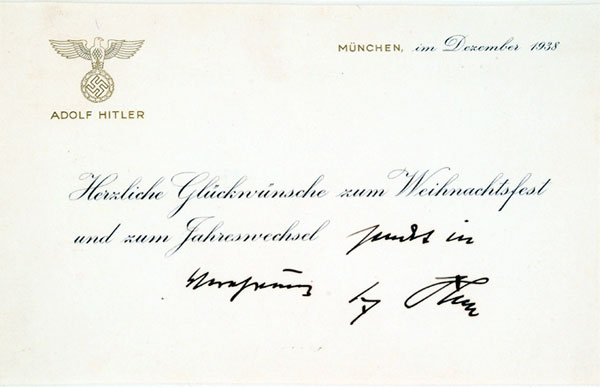 ADOLF HITLER
MÜNCHEN, im Dezember 1938
Herzliche Glückwünsche zum Weihnachtsfest
und zum Jahreswechsel sendet in